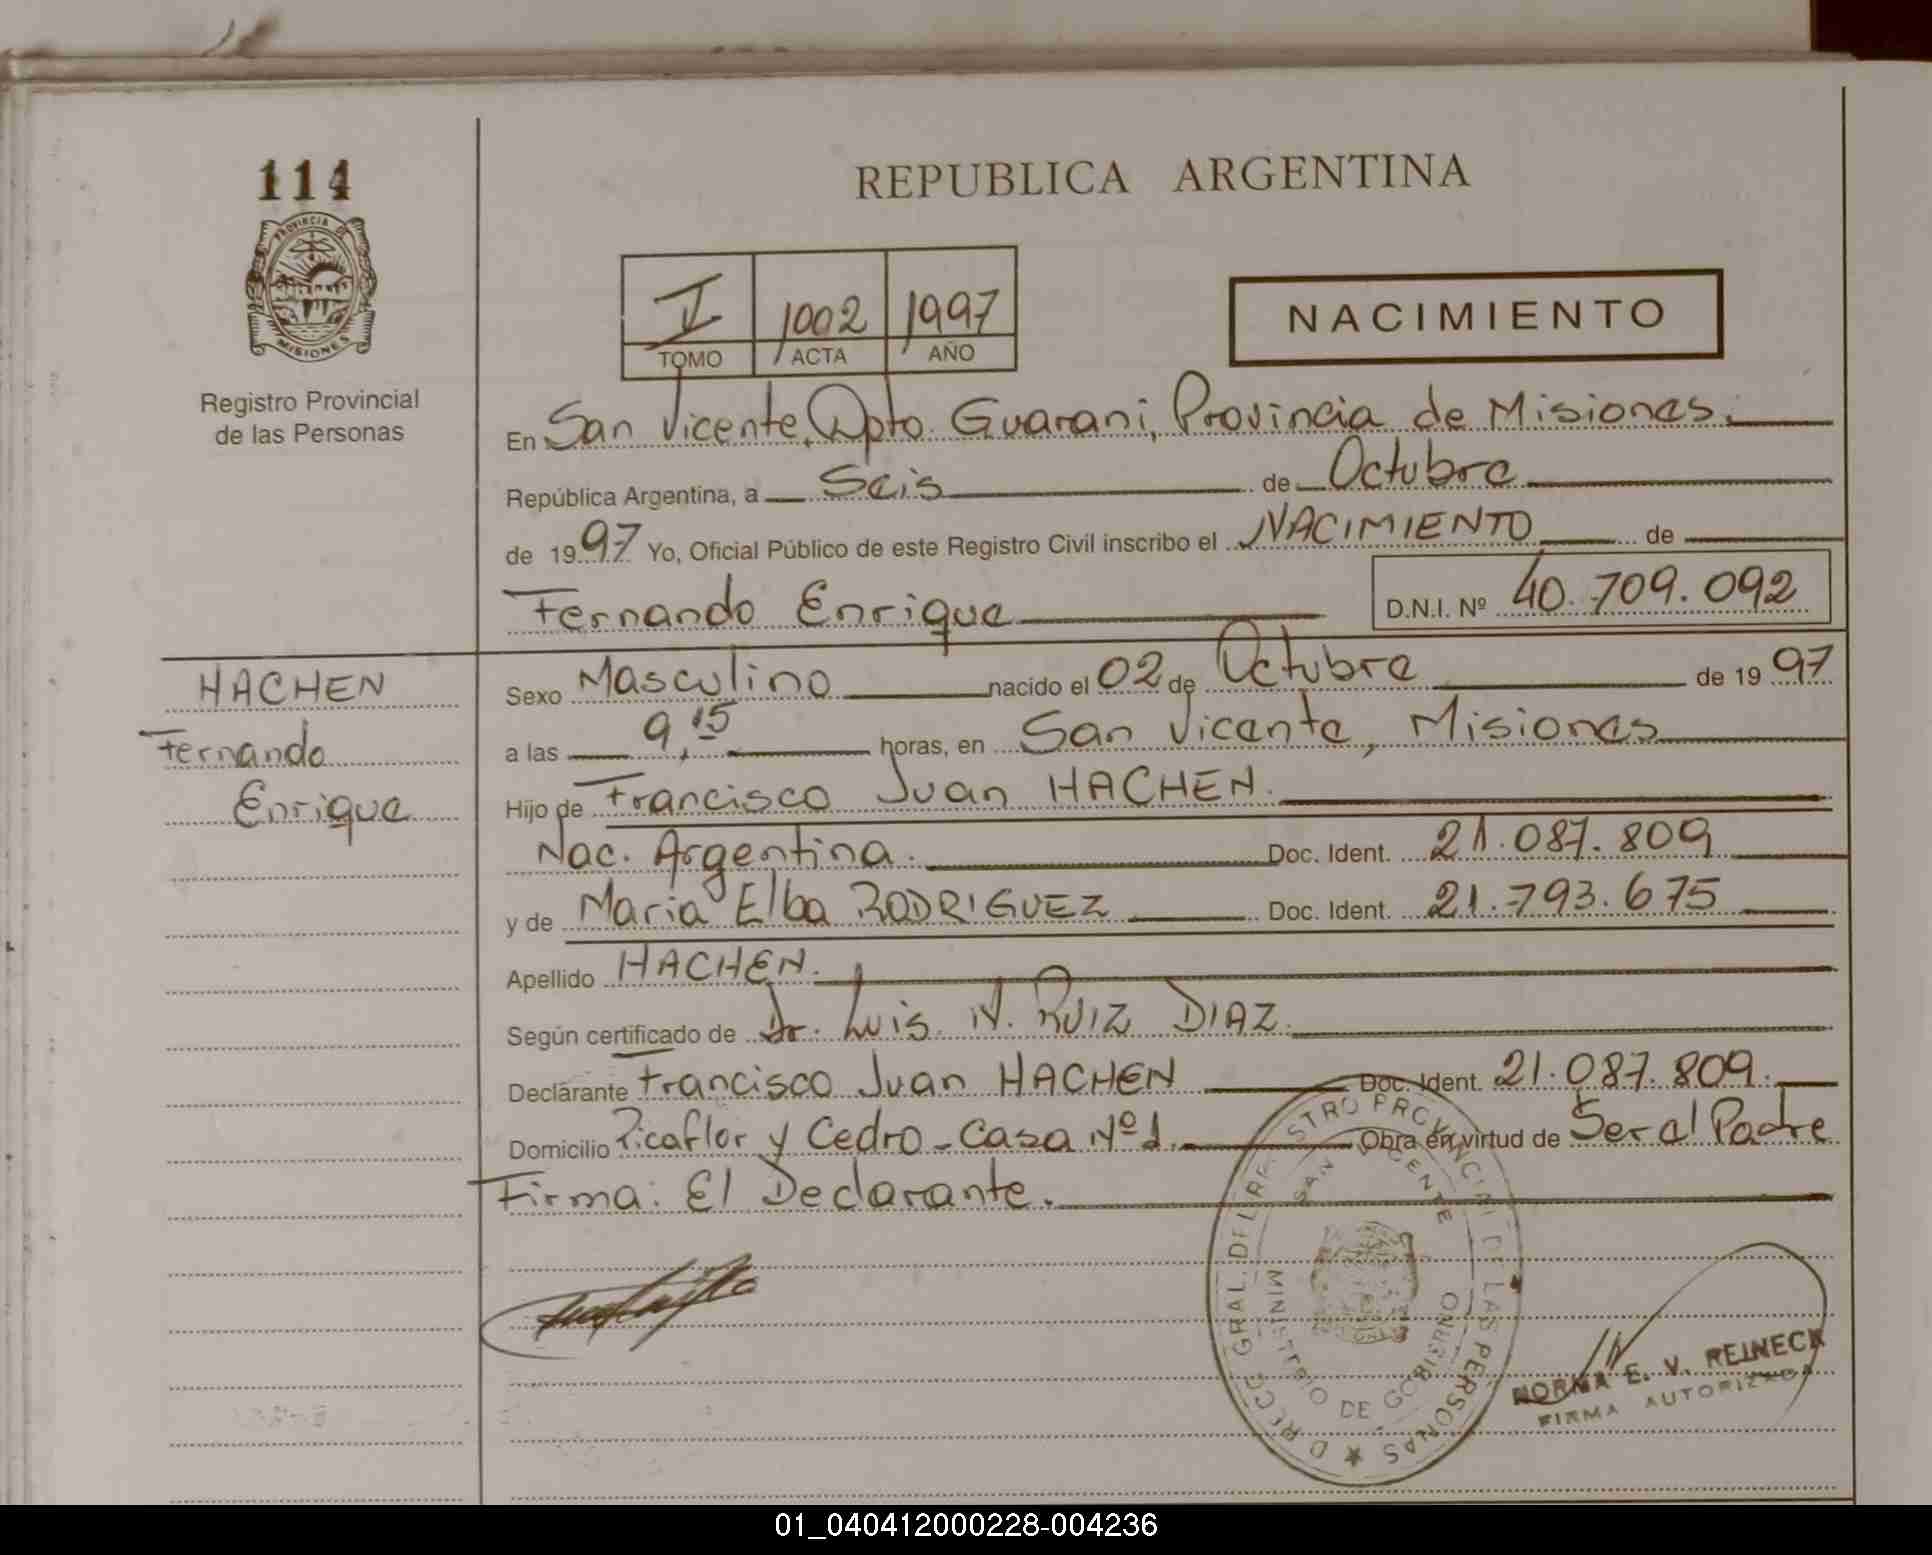 114
REPUBLICA ARGENTINA
PROVINCIA DE
MISIONES
Registro Provincial
de las Personas
I 1002 1997
TOMO ACTA AÑO
NACIMIENTO
En San Vicente, Dpto. Guarani, Provincia de Misiones.
República Argentina, a Seis de Octubre
de 1997 Yo, Oficial Público de este Registro Civil inscribo el NACIMIENTO de
Fernando Enrique D.N.I. Nº 40.709.092
HACHEN
Fernando
Enrique
Sexo Masculino nacido el 02 de Octubre de 1997
a las 9,15 horas, en San Vicente, Misiones
Hijo de Francisco Juan HACHEN.
Nac. Argentina. Doc. Ident. 21.087.809
y de Maria Elba RODRIGUEZ Doc. Ident. 21.793.675
Apellido HACHEN.
Según certificado de Dr. Luis N. RUIZ DIAZ.
Declarante Francisco Juan HACHEN Doc. Ident. 21.087.809.
Domicilio Picaflor y Cedro - Casa Nº 1. Obra en virtud de Ser al Padre
Firma: El Declarante.
DIRECC GRAL. DEL REGISTRO PROVINCIAL DE LAS PERSONAS
SAN VICENTE
MINISTERIO DE GOBIERNO
NORMA E. V. REINECK
FIRMA AUTORIZADA
01_040412000228-004236